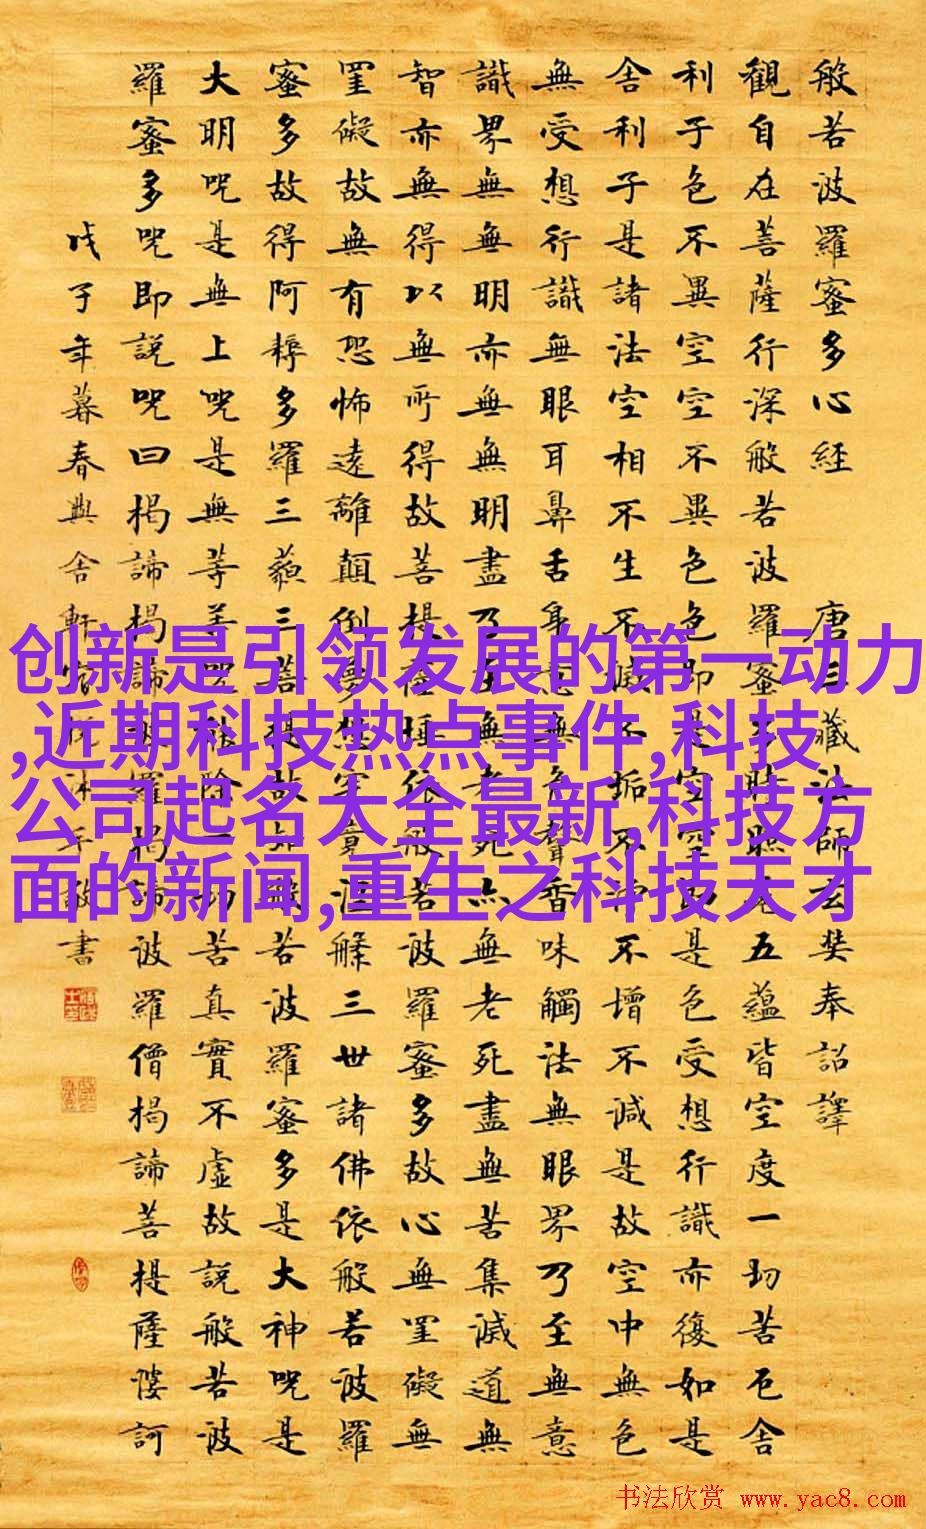 般若波羅蜜多心經 唐三藏法師玄奘奉詔譯
觀自在菩薩行深般若波羅蜜多時照見五蘊皆空度一切苦厄舍
利子色不異空空不異色色即是空空即是色受想行識亦復如是
舍利子是諸法空相不生不滅不垢不淨不增不減是故空中無色
無受想行識無眼耳鼻舌身意無色聲香味觸法無眼界乃至無意
識界無無明亦無無明盡乃至無老死亦無老死盡無苦集滅道無
智亦無得以無所得故菩提薩埵依般若波羅蜜多故心無罣礙無
罣礙故無有恐怖遠離顛倒夢想究竟涅槃三世諸佛依般若波羅
蜜多故得阿耨多羅三藐三菩提故知般若波羅蜜多是大神呪是
大明呪是無上呪是無等等呪能除一切苦真實不虛故說般若波
羅蜜多呪即說呪曰揭諦揭諦波羅揭諦波羅僧揭諦菩提薩婆訶
戊子年暮春興舍軒沐手敬書
创新是引领发展的第一动力
,近期科技热点事件,科技
公司起名大全最新,科技方
面的新闻,重生之科技天才
书法欣赏 www.yac8.com